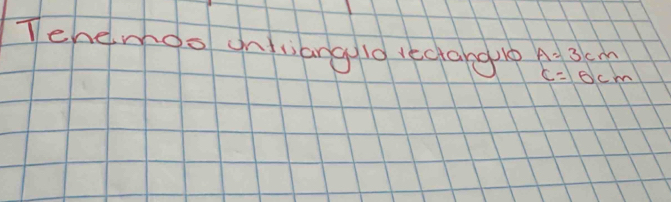 Tenemos un triangulo rectangulo A= 3cm
C= 6cm